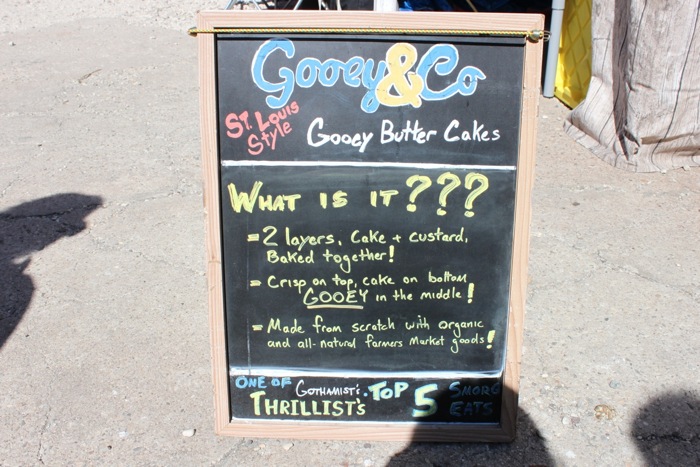 Gooey & Co
St. Louis
Style
Gooey Butter Cakes
What is it???
= 2 layers, Cake + custard,
Baked together!
= Crisp on top, cake on bottom
GOOEY in the middle!
= Made from scratch with organic
and all-natural farmers Market goods!
One of Gothamist's . Top 5 Smorg
Thrillist's Eats